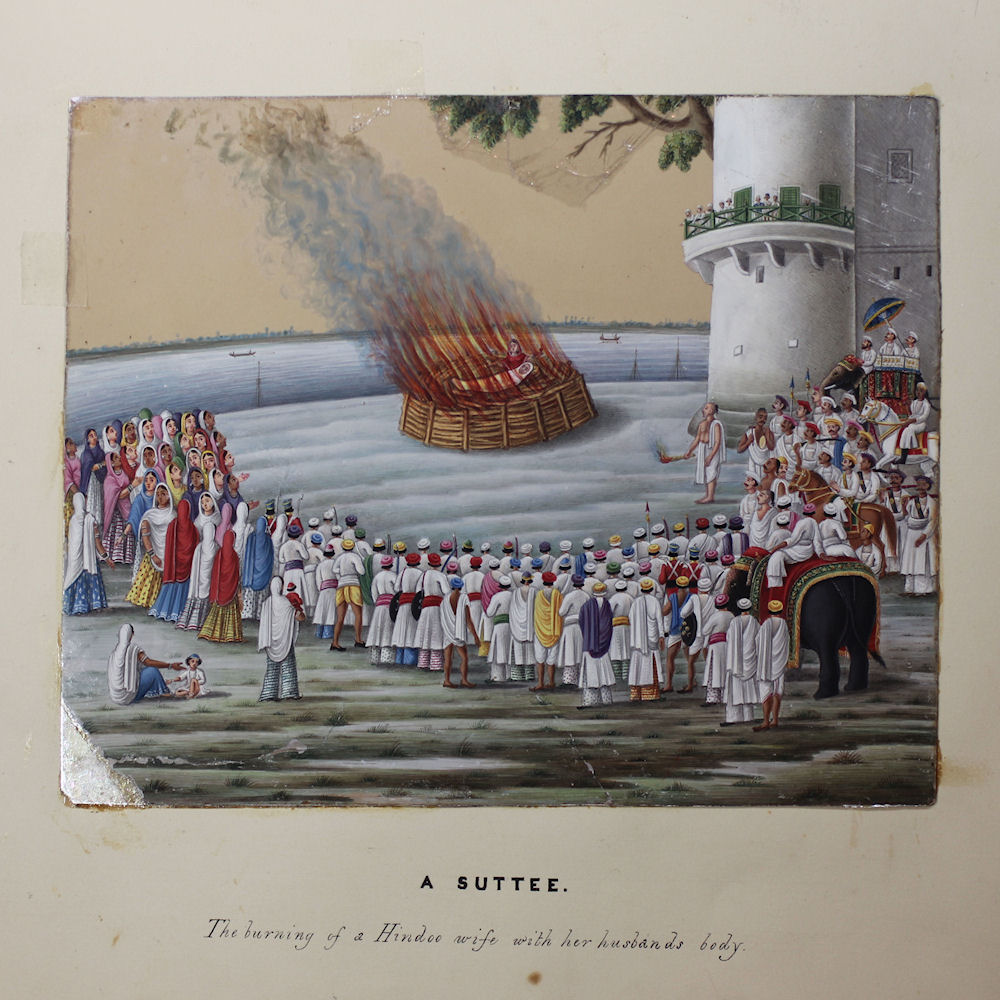 A SUTTEE.
The burning of a Hindoo wife with her husbands body.